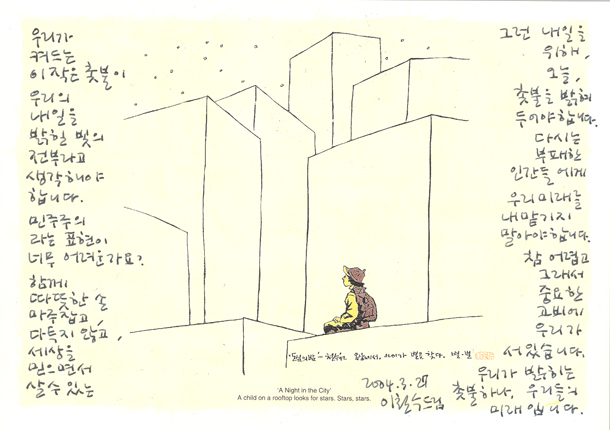 우리가
켜드는
이 작은 촛불이
우리의
내일을
밝힐 빛의
전부라고
생각해야
합니다.
민주주의
라는 표현이
너무 어려운가요?
함께
따뜻한 손
마주잡고,
다투지 않고,
세상을
믿으면서
살 수 있는
그런 내일을
위해,
오늘,
촛불을 밝혀
두어야 합니다.
다시는
부패한
인간들에게
우리 미래를
내맡기지
말아야 합니다.
참 어렵고
그래서
중요한
고비에
우리가
서 있습니다.
우리가 밝히는
촛불 하나, 우리들의
미래입니다.
옥상에서, 아이가 별을 찾다. 별.별
'A Night in the City'
A child on a rooftop looks for stars. Stars, stars.
2004.3.27
이철수드림